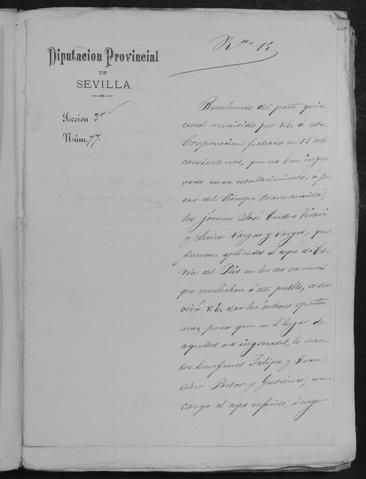 Diputacion Provincial
DE
SEVILLA
Seccion 3ª
Núm. 77.
Resultando del parte quin
cenal remitido por V.S. á esta
Corporacion fechado en 15 del
corriente mes, que no han ingre
sado en ese establecimiento, á pe
sar del tiempo transcurrido,
los jóvenes José
y Luisa Vargas y Vargas, que
fueron aplicados al cupo de Co
ria del Rio en las dos vacantes
que resultaban á este pueblo, se ser
virá V.S. dar las órdenes oportu
nas para que en el lugar de
aquellos sean ingresados, los
huérfanos Felipe y
Pastor y con
cargo al cupo referido, á cuyo